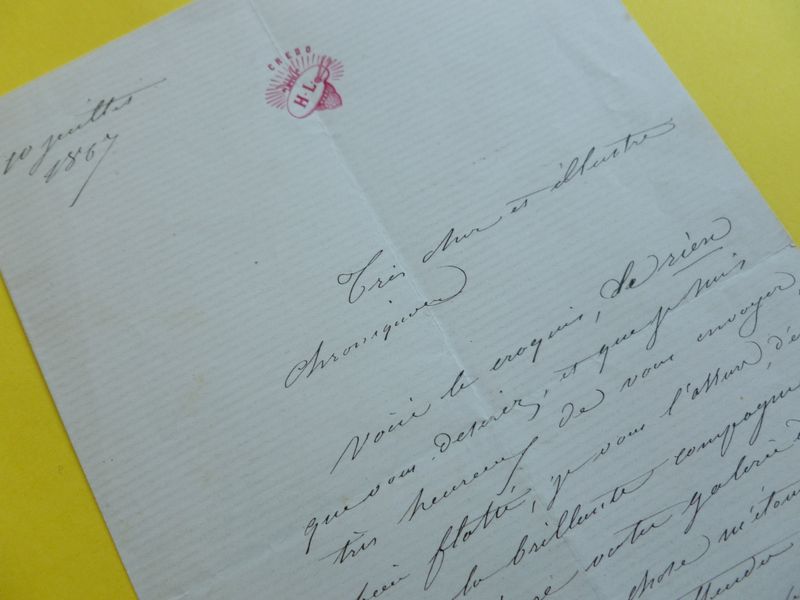 CREDO
H.L.
10 juillet
1867
Très cher et illustre
chroniqueur
Voici le croquis, de rien
que vous desirez, et que je suis
très heureux de vous envoyer,
flatté, je vous l'assure, d'ê
la brillante compagni
votre galerie d
chose m'éton